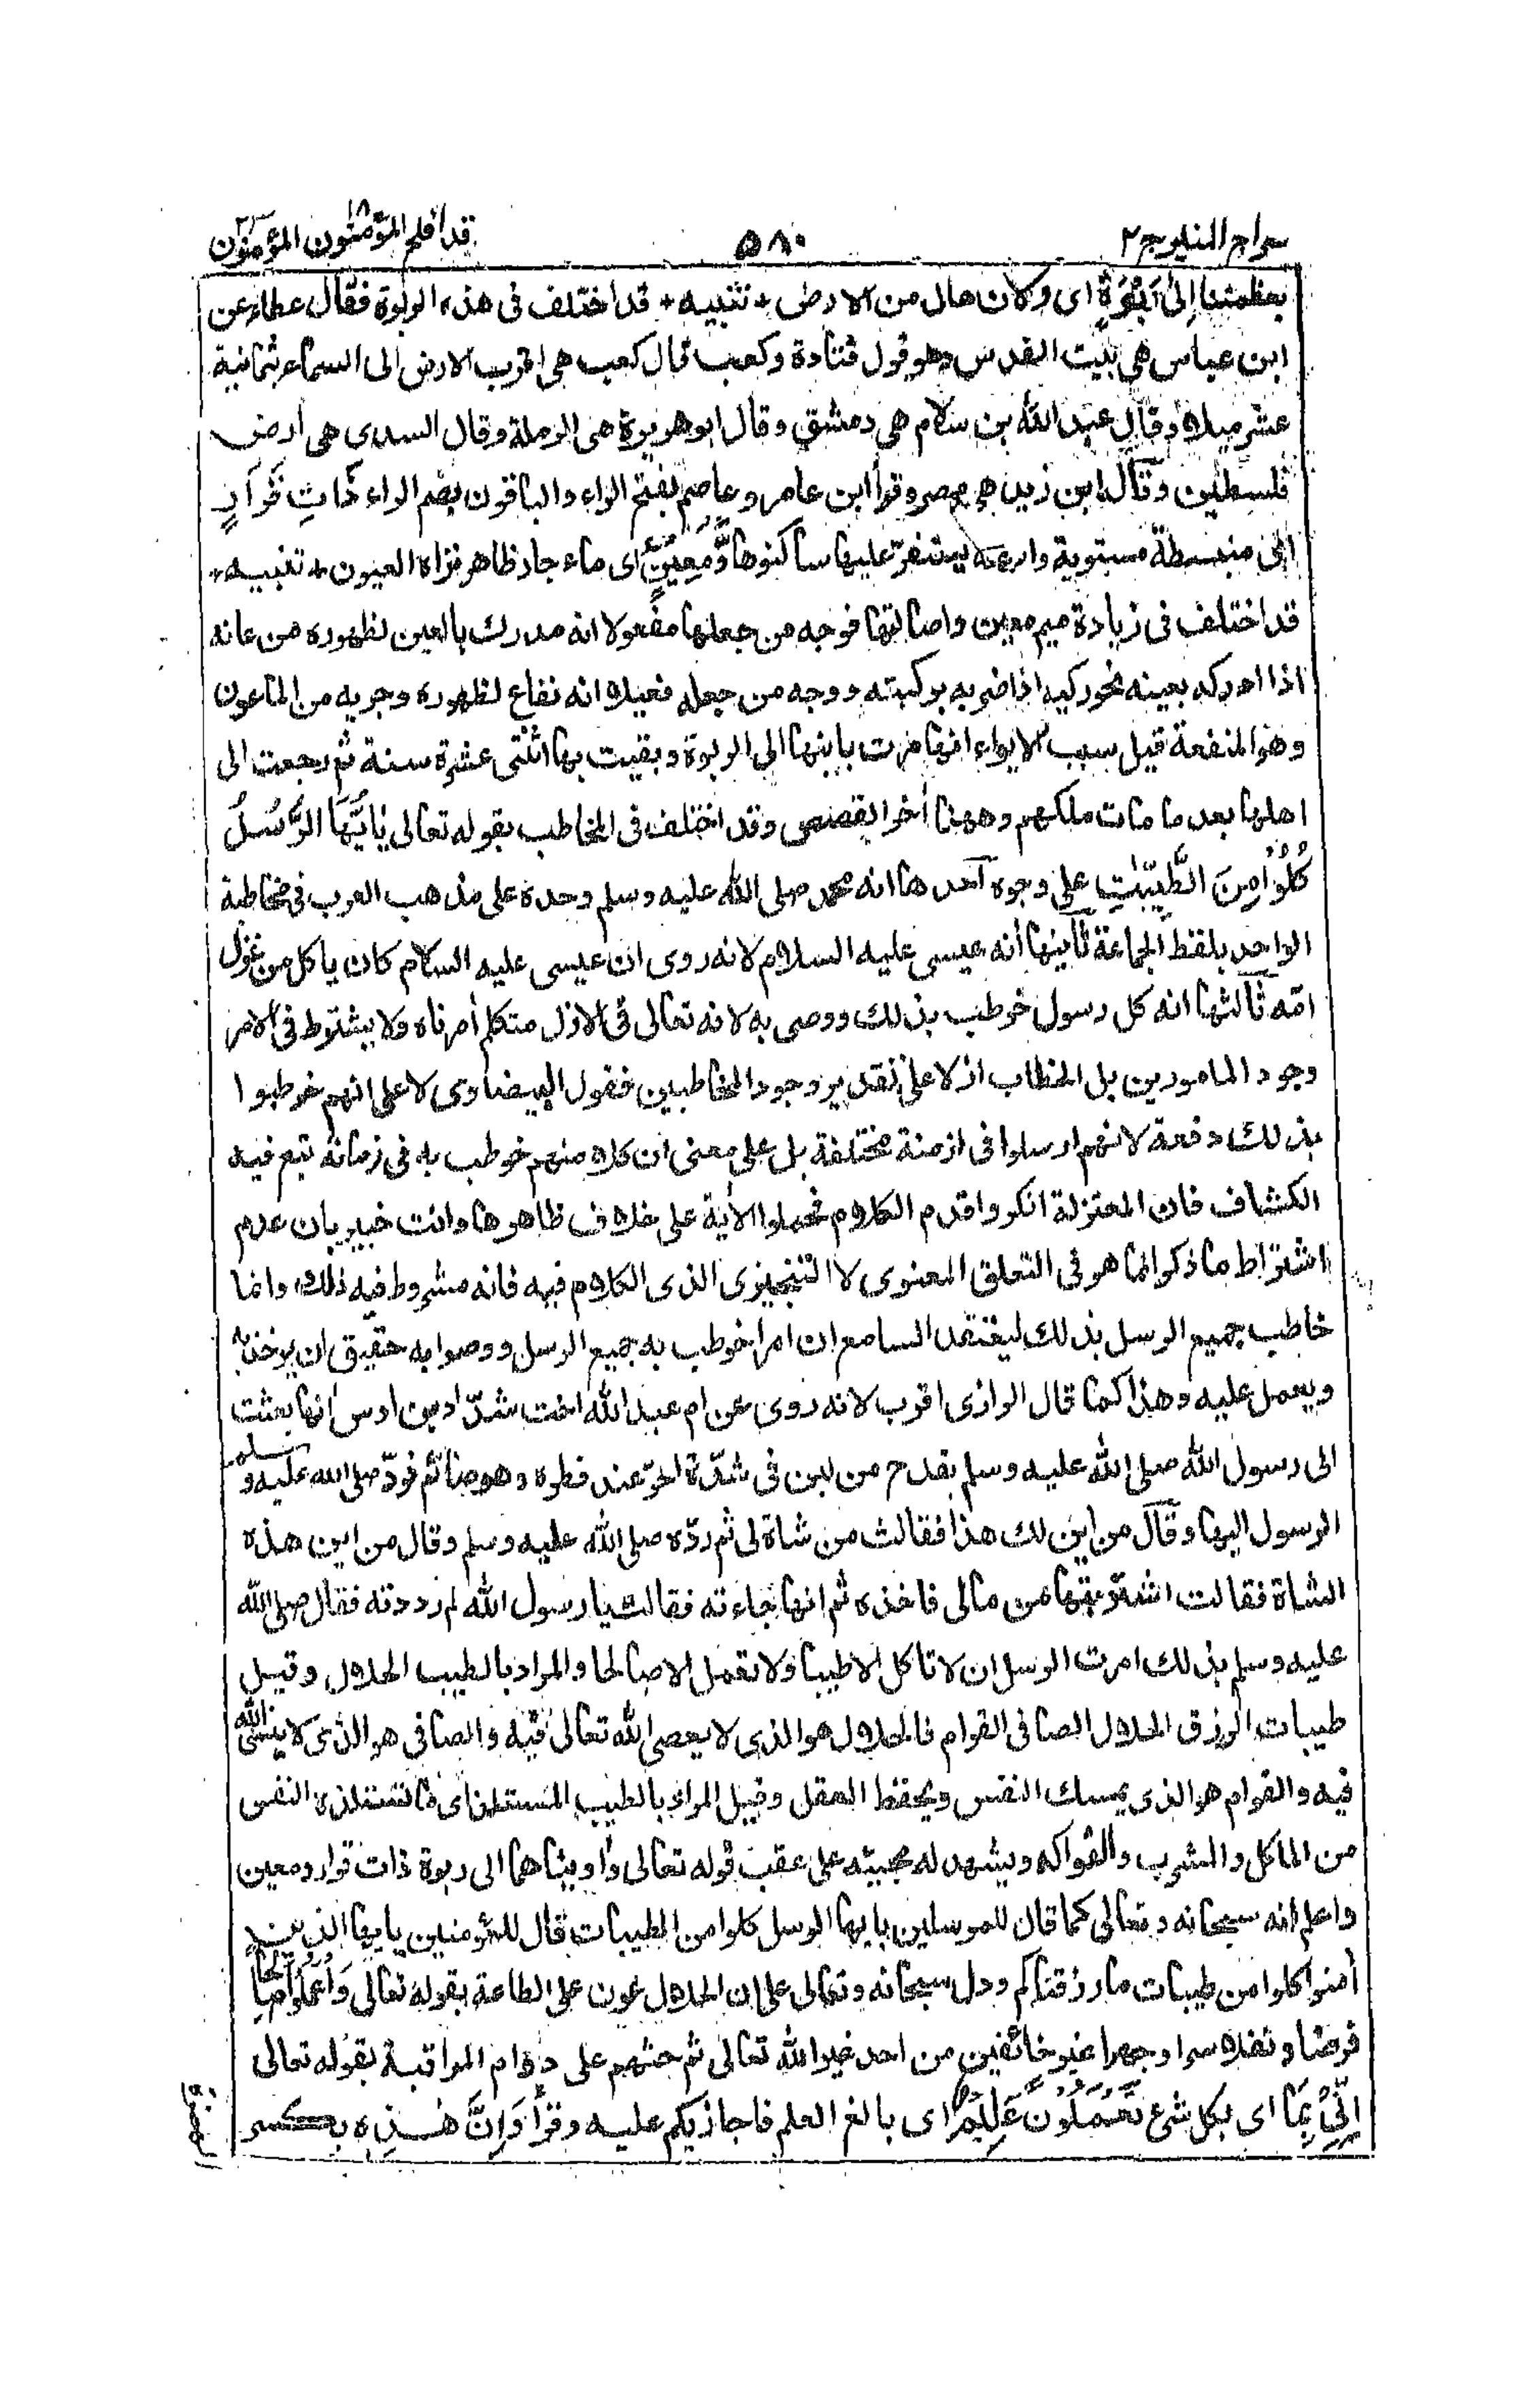 سراج المنير ج٢ ٥٨٠ قد أفلح ١٨ المؤمنون المؤمنون ٢٣
بعظمتنا إِلىٰ رَبْوَةٍ اى مكان عال من الارض + تنبيه + قد اختلف فى هذه الربوة فقال عطاء عن
ابن عباس هى بيت المقدس وهو قول قتادة وكعب قال كعب هى اقرب الارض الى السماء بثمانية
عشر ميلا وقال عبد الله بن سلام هى دمشق وقال ابو هريرة هى الرملة وقال السدى هى أرض
فلسطين وقال ابن زيد هى مصر وقرأ ابن عامر وعاصم بفتح الراء والباقون بضم الراء ذَاتِ قَرَارٍ
اى منبسطة مستوية واسعة يستقرّ عليها ساكنوها وَّمَعِيْنٍ اى ماء جار ظاهر تراه العيون + تنبيه +
قد اختلف فى زيادة ميم معين واصالتها فوجه من جعلها مفعولا انه مدرك بالعين لظهوره من عانه
اذا ادركه بعينه نحو ركبه اذا ضربه بركبته ووجه من جعله فعيلا انه نفاع لظهوره وجريه من الماعون
وهو المنفعة قيل سبب الايواء انها مرت بابنها الى الربوة وبقيت بها اثنتى عشرة سنة ثم رجعت الى
اهلها بعد ما مات ملكهم وههنا أخر القصص وقد اختلف فى المخاطب بقوله تعالى يٰاَيُّهَا الرُّسُلُ
كُلُوْا مِنَ الطَّيِّبٰتِ على وجوه أحدها انه محمد صلى الله عليه وسلم وحده على مذهب العرب فى مخاطبة
الواحد بلفظ الجماعة ثانيها أنه عيسى عليه السلام لانه روى ان عيسى عليه السلام كان ياكل من غزل
امّه ثالثها انه كل رسول خوطب بذلك ووصى به لانه تعالى فى الازل متكلم أمر ناه ولا يشترط فى الامر
وجود المامورين بل الخطاب ازلا على تقدير وجود المخاطبين فقول البيضاوى لا على انهم خوطبوا
بذلك دفعة لانهم ارسلوا فى ازمنة مختلفة بل على معنى ان كلا منهم خوطب به فى زمانه تبع فيه
الكشاف فان المعتزلة انكروا قدم الكلام فحملوا الأية على خلاف ظاهرها وانت خبير بان عدم
اشتراط ما ذكر انما هو فى التعلق المعنوى لا التنجيزى الذى الكلام فيه فانه مشروط فيه ذلك وانما
خاطب جميع الرسل بذلك ليعتقد السامع ان امرا خوطب به جميع الرسل ووصوا به حقيق ان يوخذ به
ويعمل عليه وهذا كما قال الرازى اقرب لانه روى عن ام عبد الله اخت شدّاد بن اوس انها بعثت
الى رسول الله صلى الله عليه وسلم بقدح من لبن فى شدّة الحرّ عند فطره وهو صائم فردّ صلى الله عليه وسلم
الرسول اليها وقال من اين لك هذا فقالت من شاة لى ثم ردّه صلى الله عليه وسلم وقال من اين هذه
الشاة فقالت اشتريتها من مالى فاخذه ثم انها جاءته فقالت يا رسول الله لم رددته فقال صلى الله
عليه وسلم بذلك امرت الرسل ان لا تاكل الا طيبا ولا تعمل الا صالحا والمراد بالطيب الحلال وقيل
طيبات الرزق الحلال الصافى القوام فالحلال هو الذى لا يعصى الله تعالى فيه والصافى هو الذى لا ينسى الله
فيه والقوام هو الذى يمسك النفس ويحفظ العقل وقيل المراد بالطيب المستلذ اى ما تستلذه النفس
من الماكل والمشرب والفواكه ويشهد له مجيئه على عقب قوله تعالى وأويناهما الى ربوة ذات قرار ومعين
واعلم انه سبحانه وتعالى كما قال للمرسلين يايها الرسل كلوا من الطيبات قال للمؤمنين يايها الذين
أمنوا كلوا من طيبات ما رزقناكم ودل سبحانه وتعالى على ان الحلال عون على الطاعة بقوله تعالى وَاعْمَلُوْا صَالِحًا
فرضا ونفلا سرا وجهرا غير خائفين من احد غير الله تعالى ثم حثهم على دوام المراقبة بقوله تعالى
اِنِّىْ بِمَا اى بكل شىء تَعْمَلُوْنَ عَلِيْمٌ اى بالغ العلم فاجازيكم عليه وقرأ وَاِنَّ هٰذِه بكسر